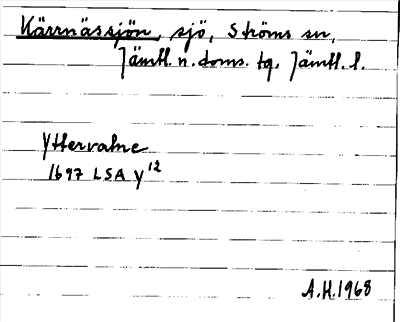 Kärrnässjön, sjö, Ströms sn,
Jämtl. n. doms. tg. Jämtl. l.
Yttervalne
1697 LSA Y12
A.H. 1968